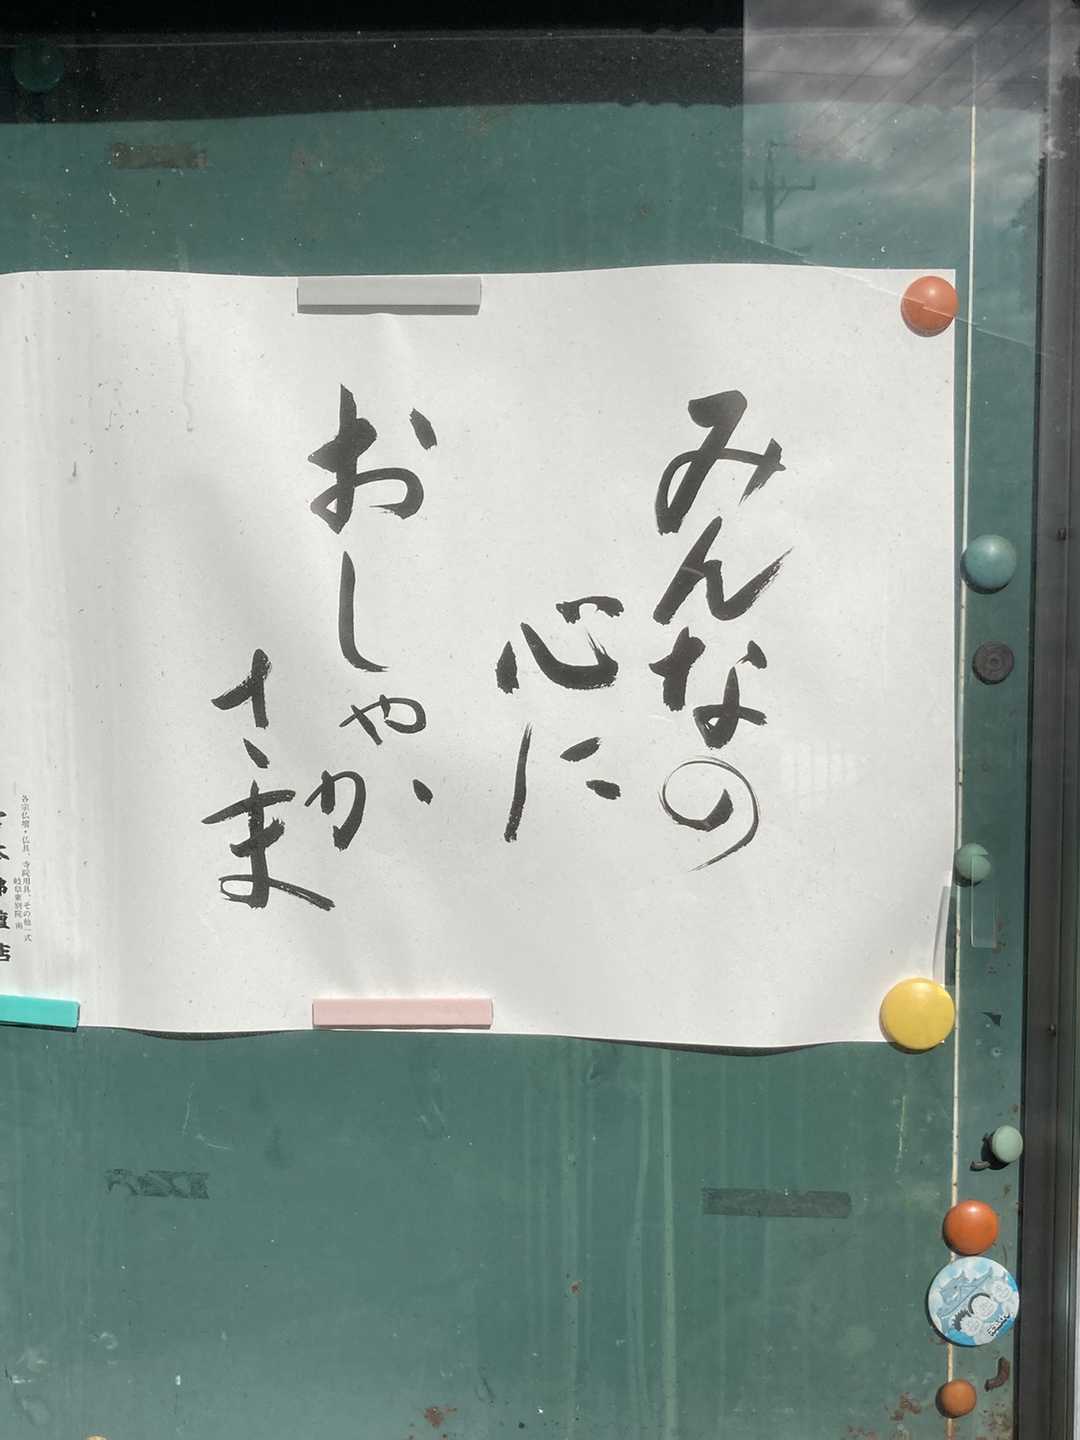 みんなの
心に
おしゃか
さま
各宗仏壇・仏具、寺院用具、その他一式
岐阜東別院 南